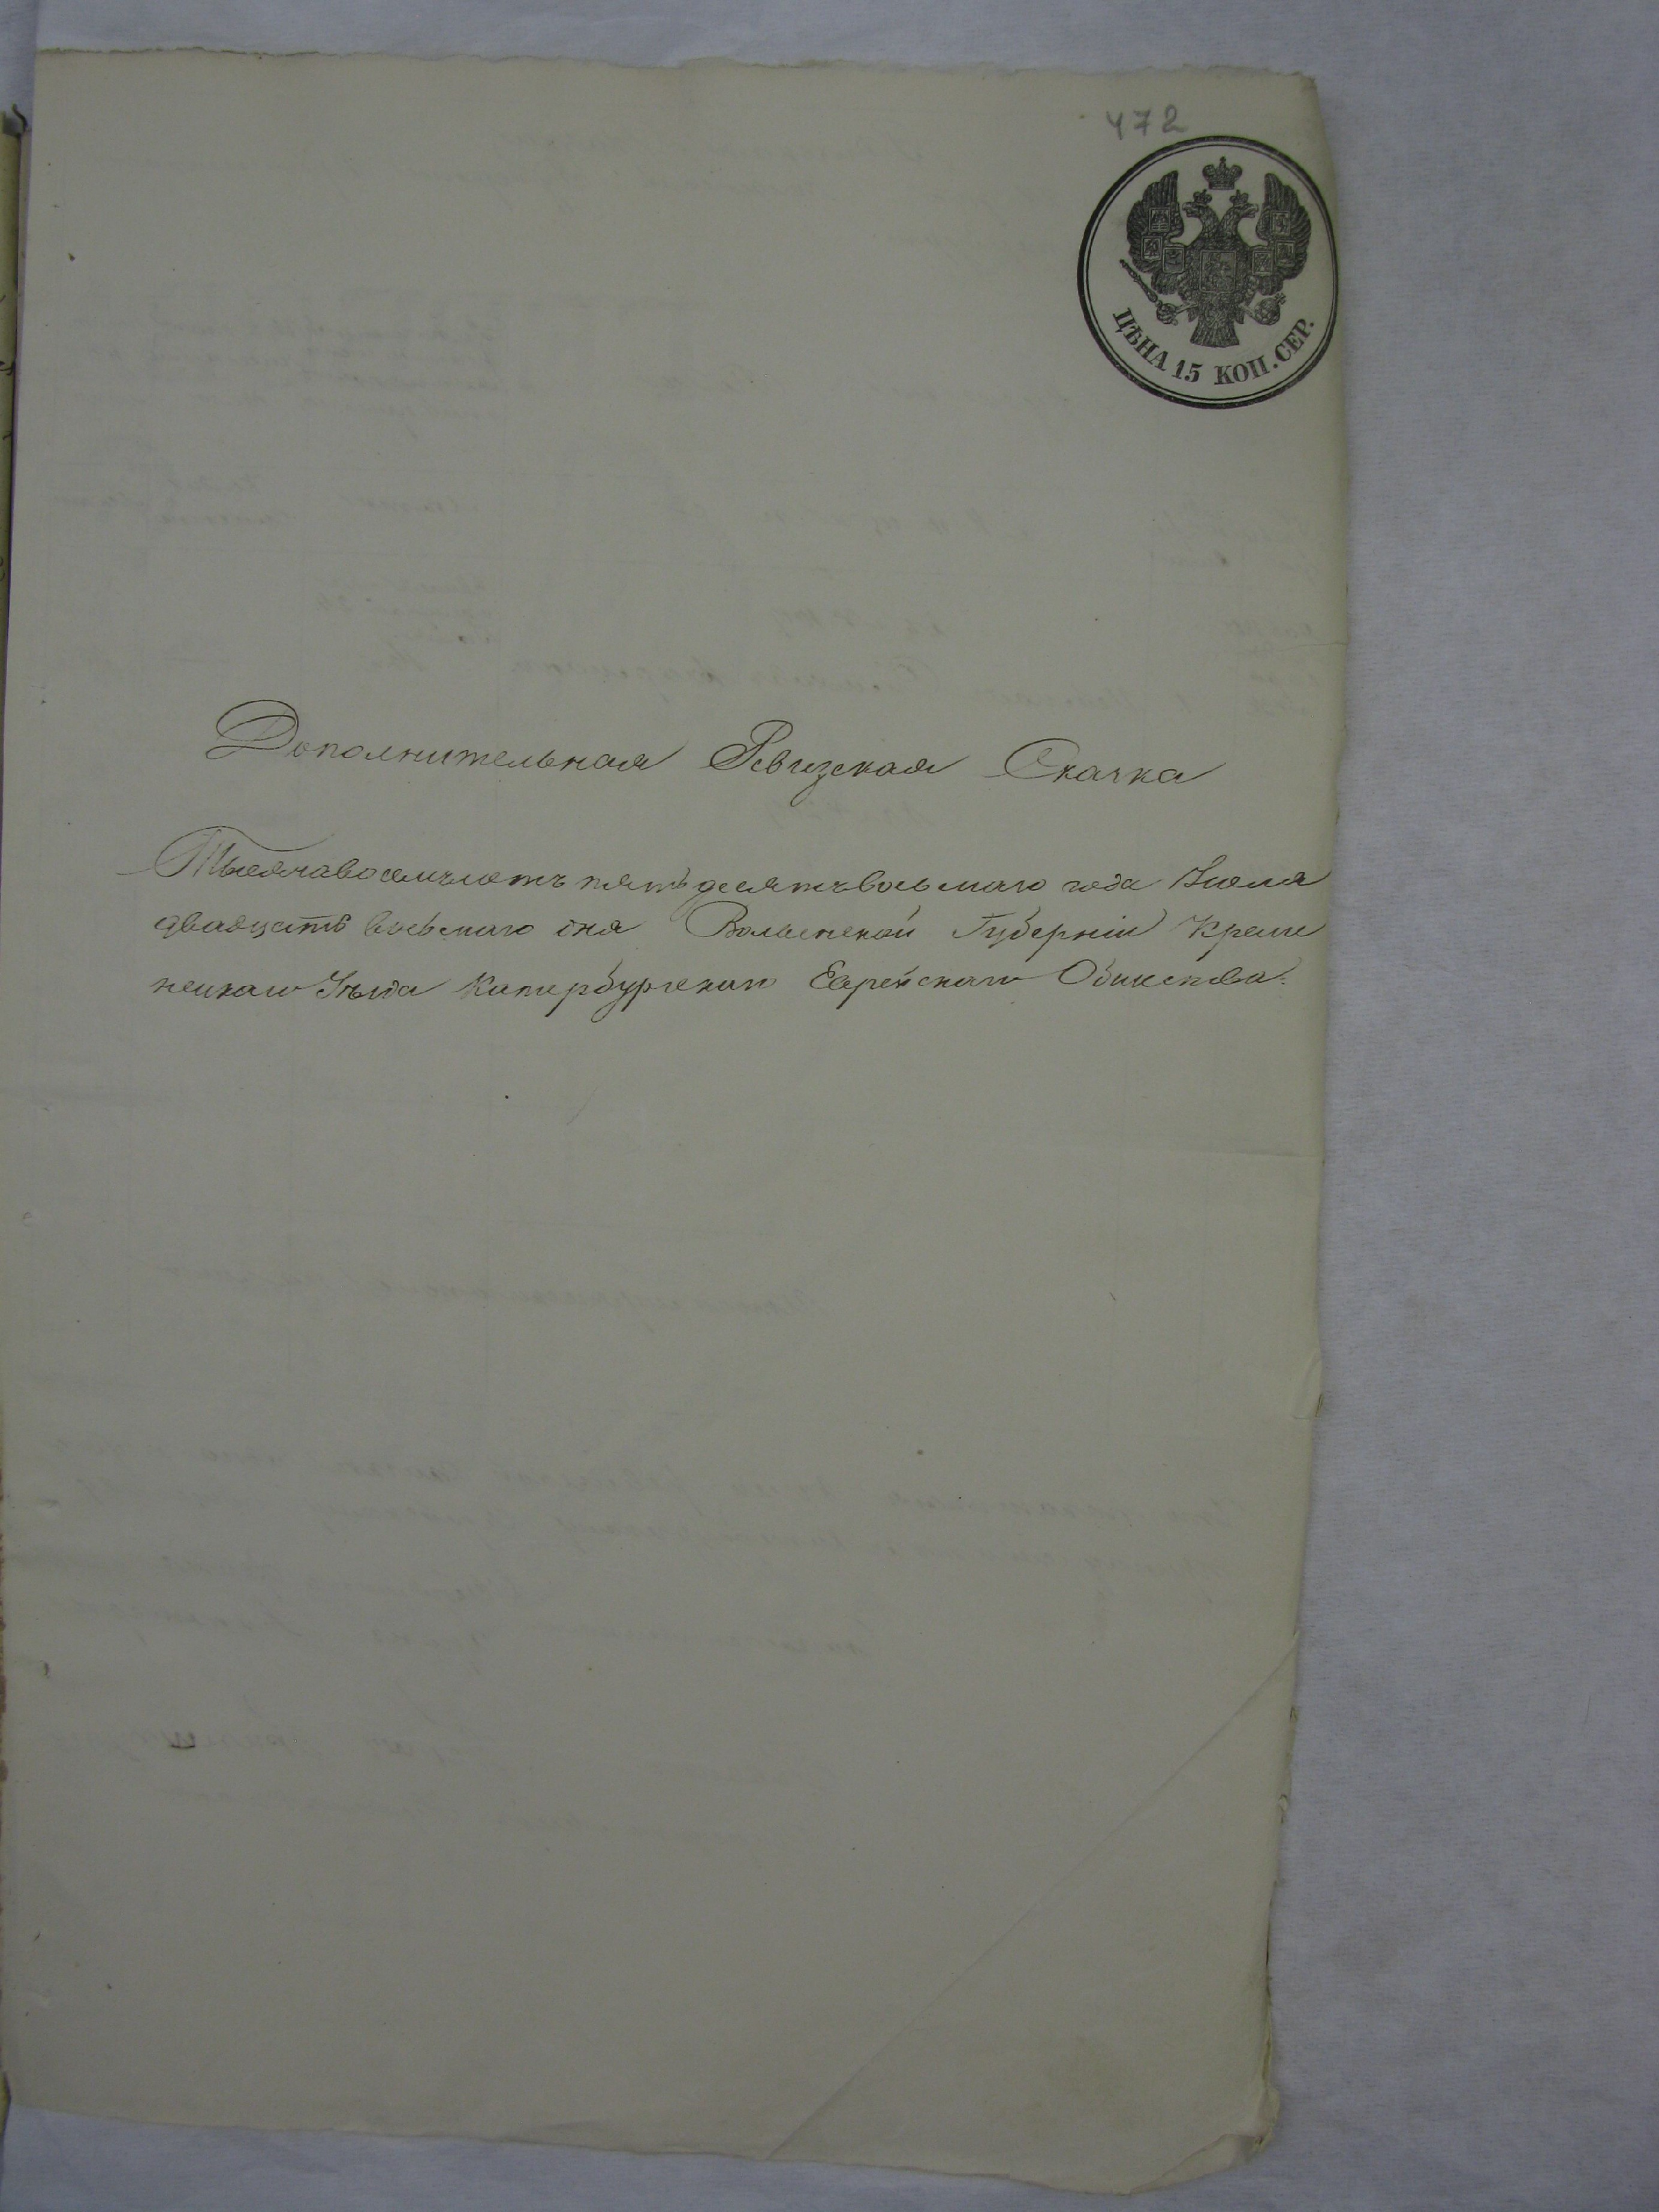 472
ЦѢНА 15 КОП. СЕР.
Дополнительная Ревизская Скаска
Тысячавосемъсотъ пятьдесятъ восьмаго года Іюля
двадцать восьмаго дня Волынской Губерніи Креме
нецкаго Уѣзда Катербургскаго Еврейскаго Общества.